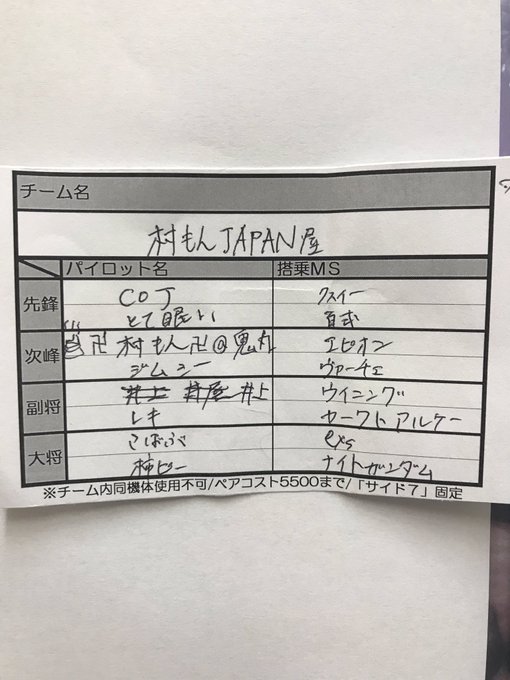 チーム名
村もんJAPAN屋
パイロット名 搭乗MS
先鋒 COJ クスィー
とて眠い 百式
次峰 卍村もん卍@鬼丸 エピオン
ジムシー ヴァーチェ
副将 井上 ウイニング
レキ ヤークトアルケー
大将 こばぶべ exs
柿ピー ナイトガンダム
※チーム内同機体使用不可/ペアコスト5500まで/「サイド7」固定